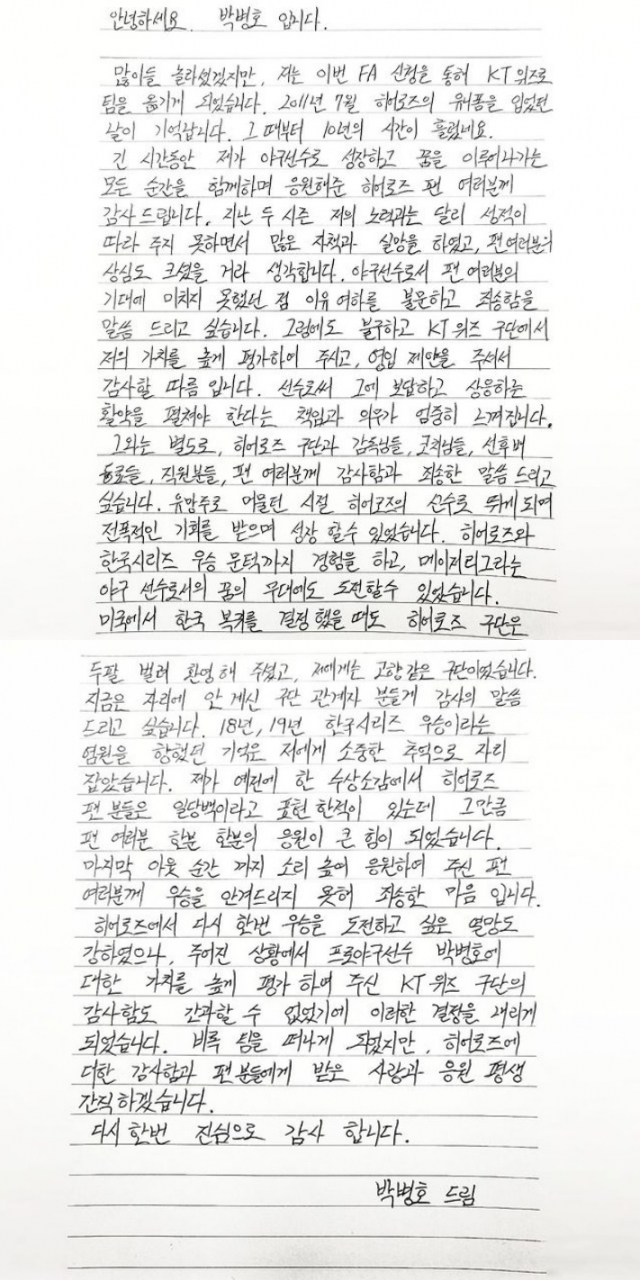 안녕하세요. 박병호 입니다.
많이들 놀라셨겠지만, 저는 이번 FA 신청을 통해 KT위즈로
팀을 옮기게 되었습니다. 2011년 7월 히어로즈의 유니폼을 입었던
날이 기억납니다. 그 때부터 10년의 시간이 흘렀네요.
긴 시간동안 제가 야구선수로 성장하고 꿈을 이루어나가는
모든 순간을 함께하며 응원해준 히어로즈 팬 여러분께
감사드립니다. 지난 두 시즌 저의 노력과는 달리 성적이
따라 주지 못하면서 많은 자책과 실망을 하였고, 팬여러분의
상심도 크셨을 거라 생각합니다. 야구선수로서 팬 여러분의
기대에 미치지 못했던 점 이유 여하를 불문하고 죄송함을
말씀 드리고 싶습니다. 그럼에도 불구하고 KT위즈 구단에서
저의 가치를 높게 평가하여 주시고, 영입 제안을 주셔서
감사할 따름 입니다. 선수로써 그에 보답하고 상응하는
활약을 펼쳐야 한다는 책임과 의무가 엄중히 느껴집니다.
그와는 별도로, 히어로즈 구단과 감독님들, 코치님들, 선후배
동료들, 직원분들, 팬 여러분께 감사함과 죄송한 말씀 드리고
싶습니다. 유망주로 머물던 시절 히어로즈의 선수로 뛰게 되며
전폭적인 기회를 받으며 성장 할수 있었습니다. 히어로즈와
한국시리즈 우승 문턱까지 경험을 하고, 메이저리그라는
야구 선수로서의 꿈의 무대에도 도전할수 있었습니다.
미국에서 한국 복귀를 결정 했을 때도 히어로즈 구단은
두팔 벌려 환영해 주셨고, 저에게는 고향같은 구단이었습니다.
지금은 자리에 안 계신 구단 관계자 분들께 감사의 말씀
드리고 싶습니다. 18년, 19년 한국시리즈 우승이라는
염원을 향했던 기억은 저에게 소중한 추억으로 자리
잡았습니다. 제가 예전에 한 수상소감에서 히어로즈
팬 분들은 일당백이라고 표현 한적이 있는데 그만큼
팬 여러분 한분 한분의 응원이 큰 힘이 되었습니다.
마지막 아웃 순간 까지 소리 높여 응원하여 주신 팬
여러분께 우승을 안겨드리지 못해 죄송한 마음 입니다.
히어로즈에서 다시 한번 우승을 도전하고 싶은 열망도
강하였으나, 주어진 상황에서 프로야구선수 박병호에
대한 가치를 높게 평가 하여 주신 KT위즈 구단의
감사함도 간과할 수 없었기에 이러한 결정을 내리게
되었습니다. 비록 팀을 떠나게 되었지만, 히어로즈에
대한 감사함과 팬분들에게 받은 사랑과 응원 평생
간직하겠습니다.
다시 한번 진심으로 감사 합니다.
박병호 드림